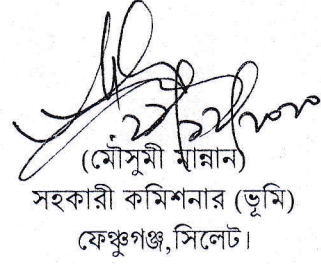 (মৌসুমী মান্নান)
সহকারী কমিশনার (ভূমি)
ফেঞ্চুগঞ্জ,সিলেট।